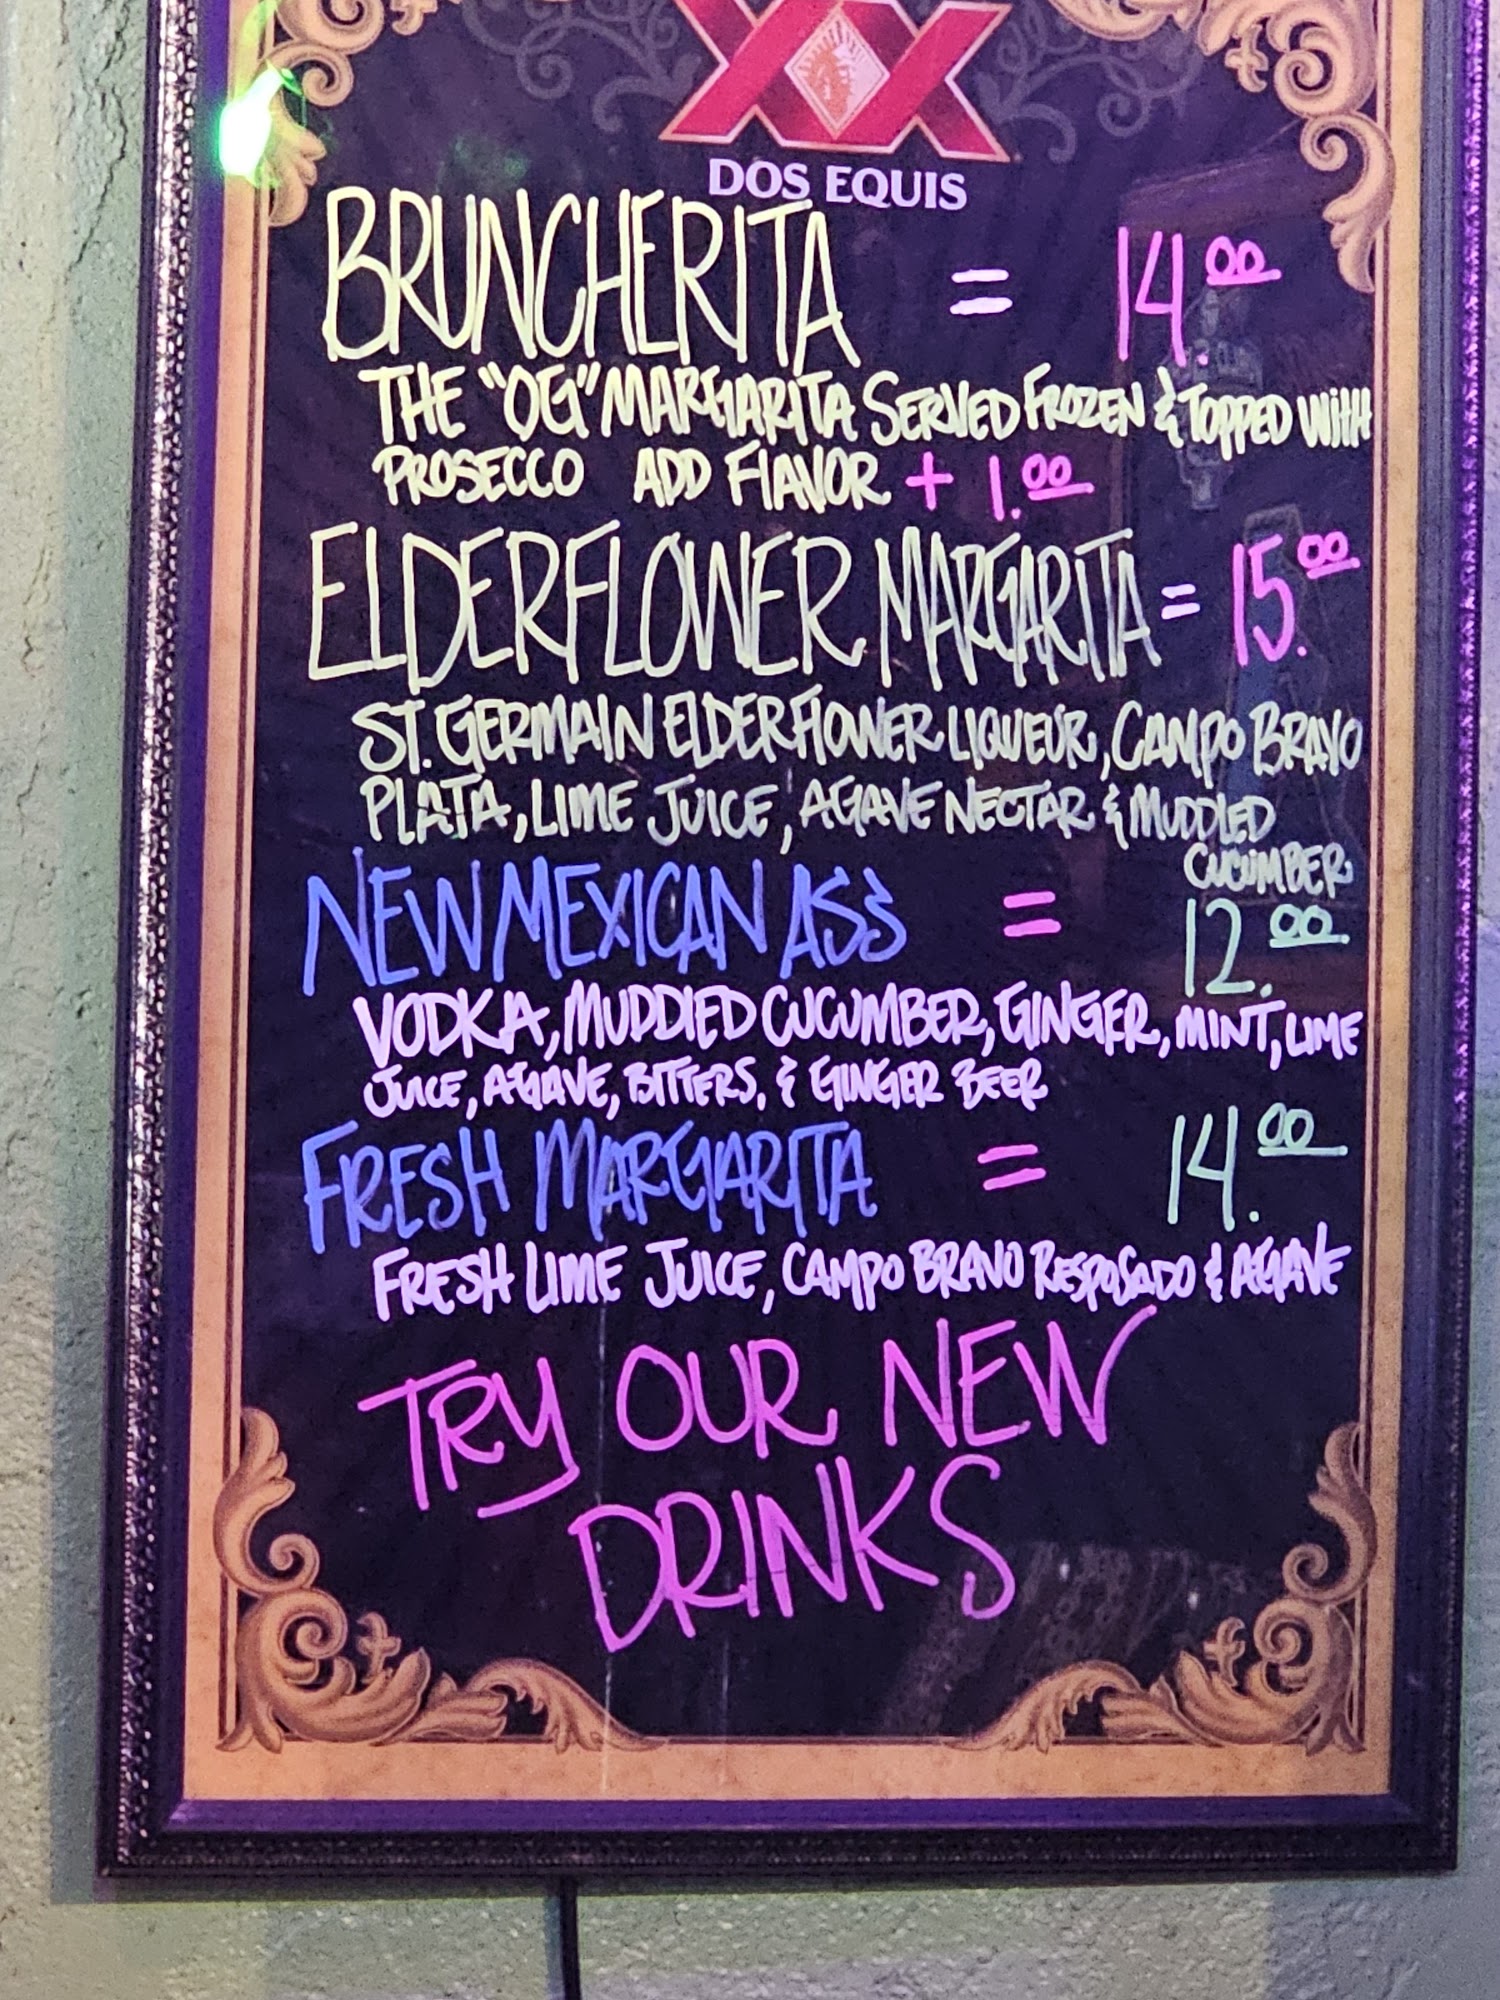 XX
DOS EQUIS
BRUNCHERITA = 14.00
THE "OG" MARGARITA SERVED FROZEN & TOPPED WITH
PROSECCO ADD FLAVOR + 1.00
ELDERFLOWER MARGARITA = 15.00
ST. GERMAIN ELDERFLOWER LIQUEUR, CAMPO BRAVO
PLATA, LIME JUICE, AGAVE NECTAR & MUDDLED
CUCUMBER
NEW MEXICAN ASS = 12.00
VODKA, MUDDLED CUCUMBER, GINGER, MINT, LIME
JUICE, AGAVE, BITTERS, & GINGER BEER
FRESH MARGARITA = 14.00
FRESH LIME JUICE, CAMPO BRAVO RESPOSADO & AGAVE
TRY OUR NEW
DRINKS